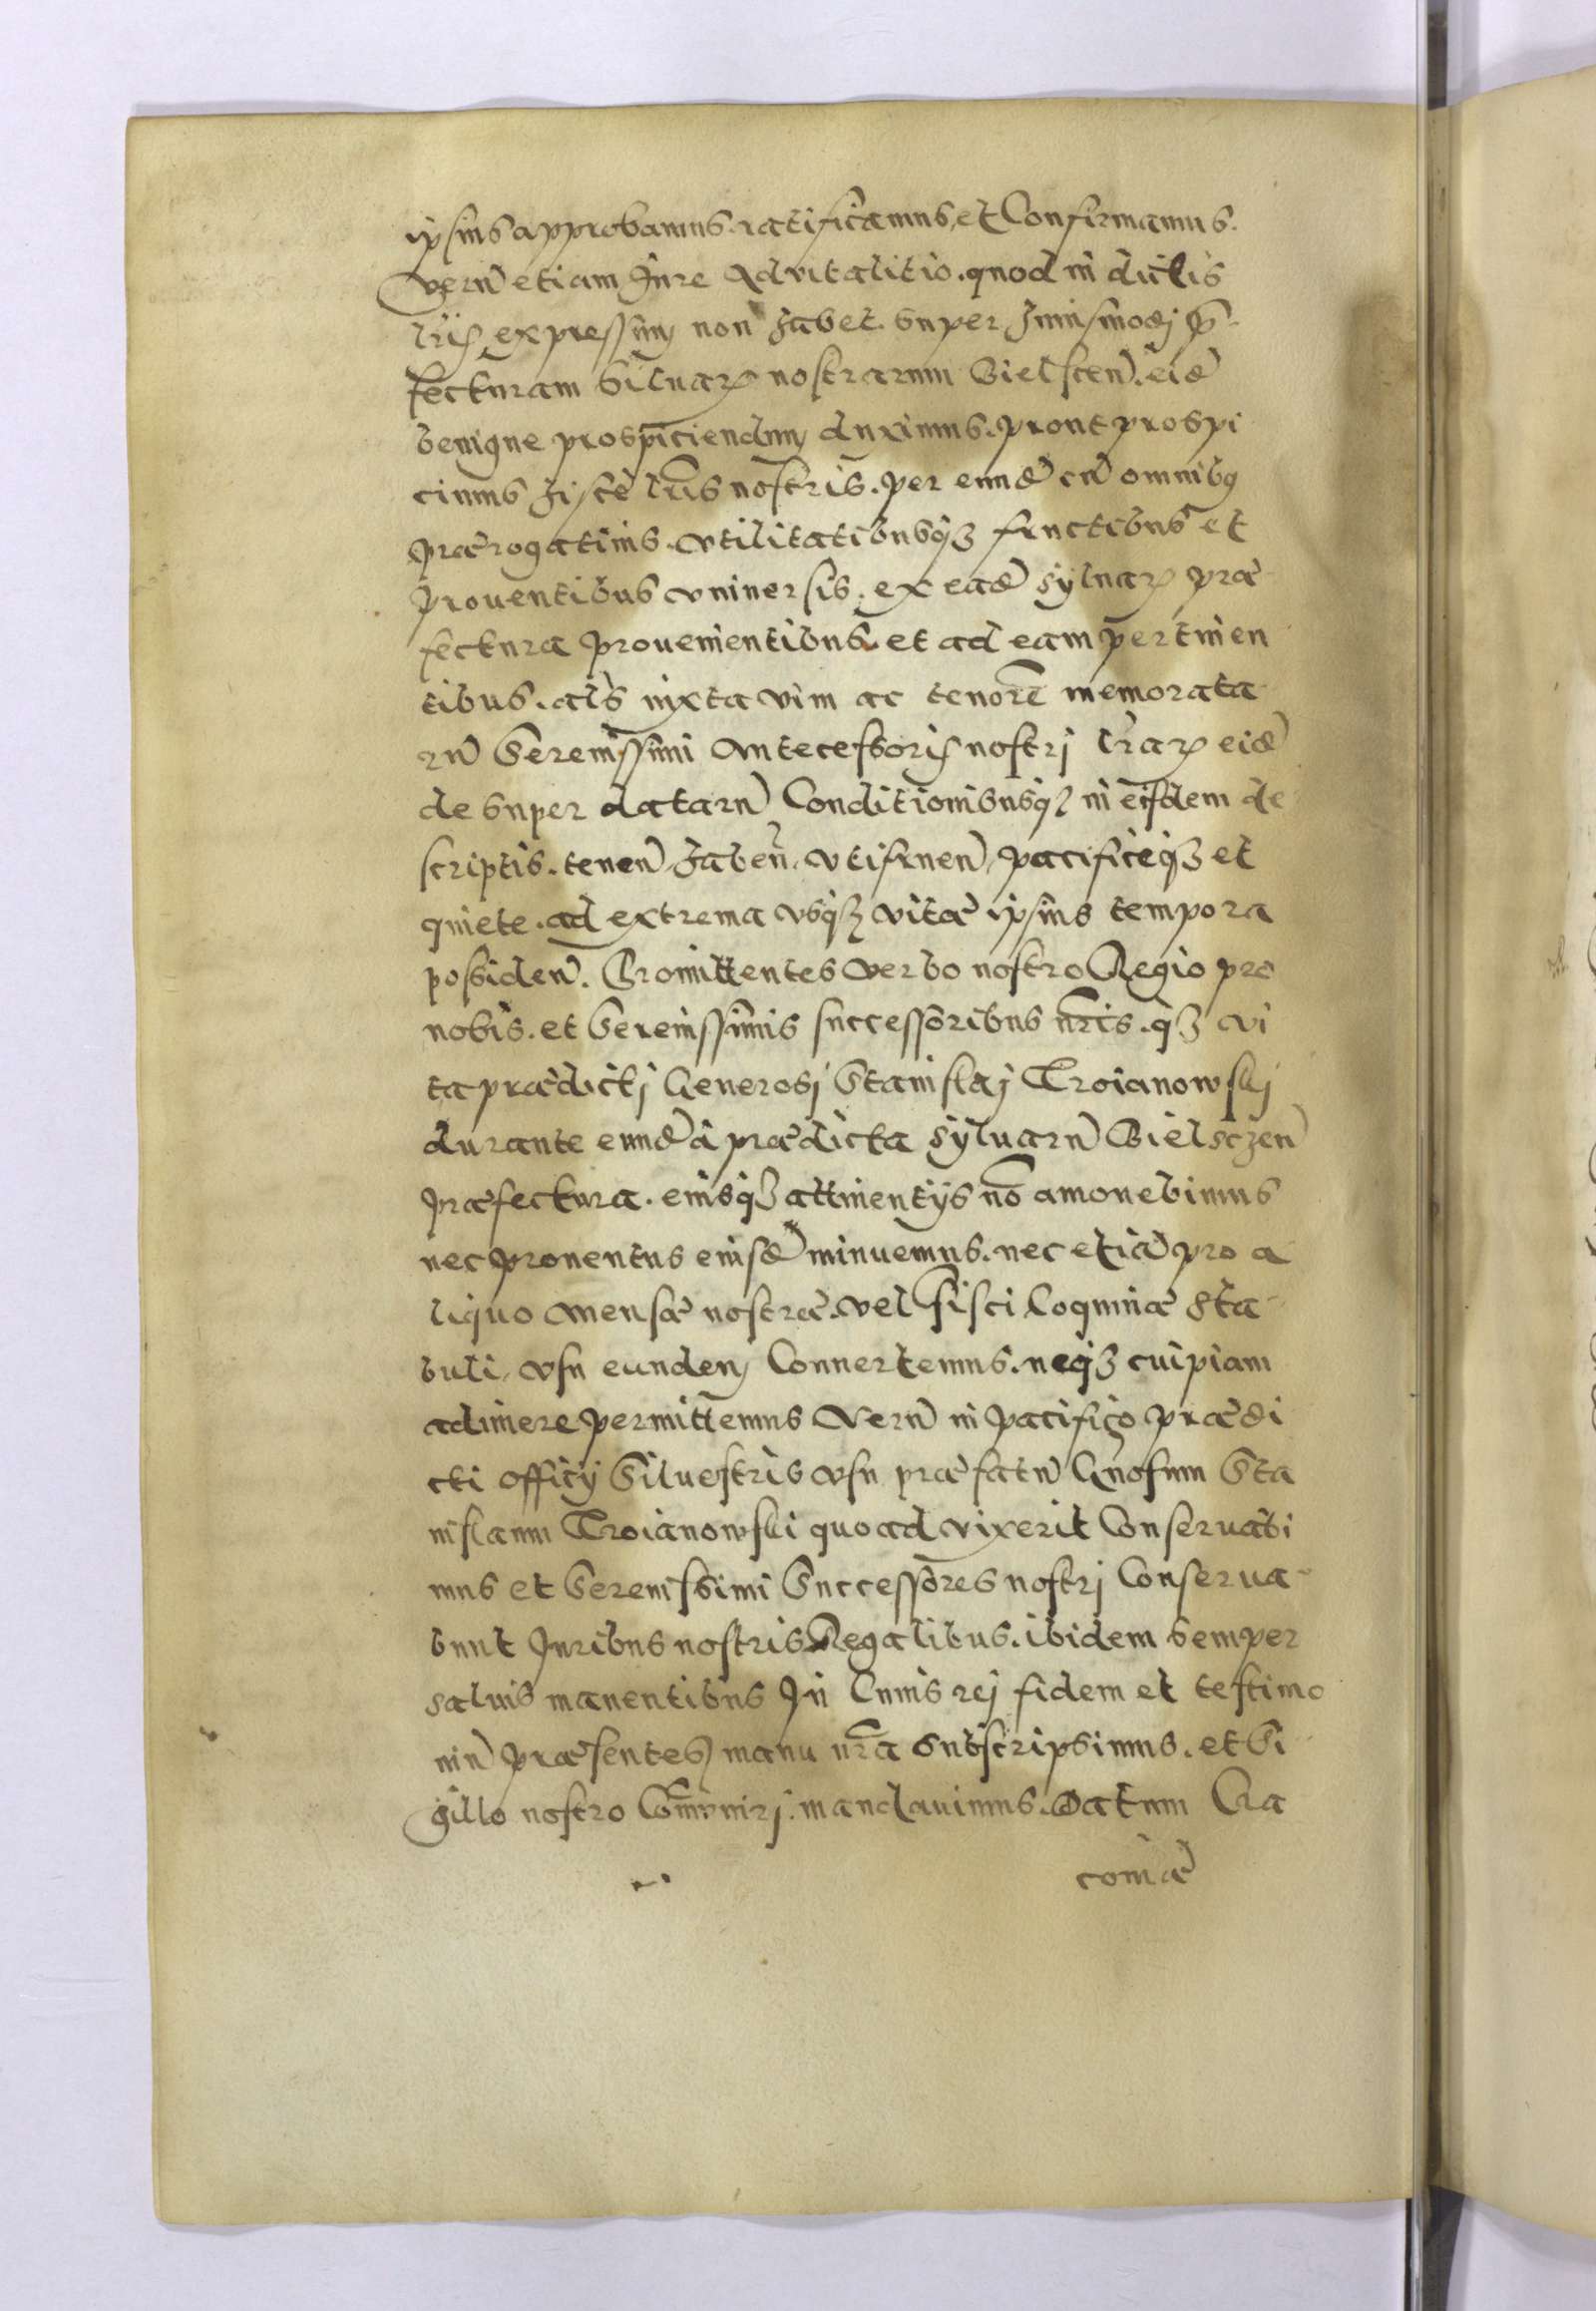 ipsius approbamus. ratificamus, et Confirmamus.
Verũ etiam Jure Advitalitio. quod in dictis
lr̃is expressum non habet. super huiusmodj p̃-
fecturam Siluaꝝ nostrarum Bielscen̄. eid̃
benigne prospiciendum duximus. prout prospi
cimus hisce lr̃is nostris. per eund̃ cũ omnibꝰ
prærogatiuis. vtilitatibusqꝫ fructibus et
prouentibus vniuersis. ex ead̃ syluaꝝ præ-
fectura prouenientibus. et ad eam pertinen
tibus. als̃ iuxta vim ac tenorẽ memorata-
rũ Serenissimi Antecessoris nostri lr̃aꝝ eid̃
de super datarũ Conditionibusqꝫ in eisdem de
scriptis. tenen̄ haben̄. vtifruen̄, pacificeqꝫ et
quiete. ad extrema vsqꝫ vitæ ipsius tempora
possiden̄. Promittentes verbo nostro Regio pro
nobis. et Serenissimis successoribus nr̃is. qꝫ vi
ta prædictj Generosj Stanislaj Troianowskj
durante eund̃ à prædicta syluarũ Bielsczen̄
præfectura. eiusqꝫ attinentijs nõ amouebimus
nec prouentus eiusd̃ minuemus. nec etiã pro a
liquo mensæ nostræ. vel Fisci Coquinæ sta-
buli, vsu eundem Conuertemus. neqꝫ cuipiam
adimere permittemus Verũ in pacifico prædi
cti officij Siluestris vsu præfatũ Gnosum Sta
nislaum Troianowski quoad vixerit Conseruabi
mus et Serenissimi Successores nostrj Conserua-
bunt Juribus nostris Regalibus. ibidem semper
saluis manentibus In Cuius rej fidem et testimo
niũ præsentes manu nr̃a subscripsimus. et Si
gillo nostro Com̃unirj. mandauimus. Datum Cra
couiæ